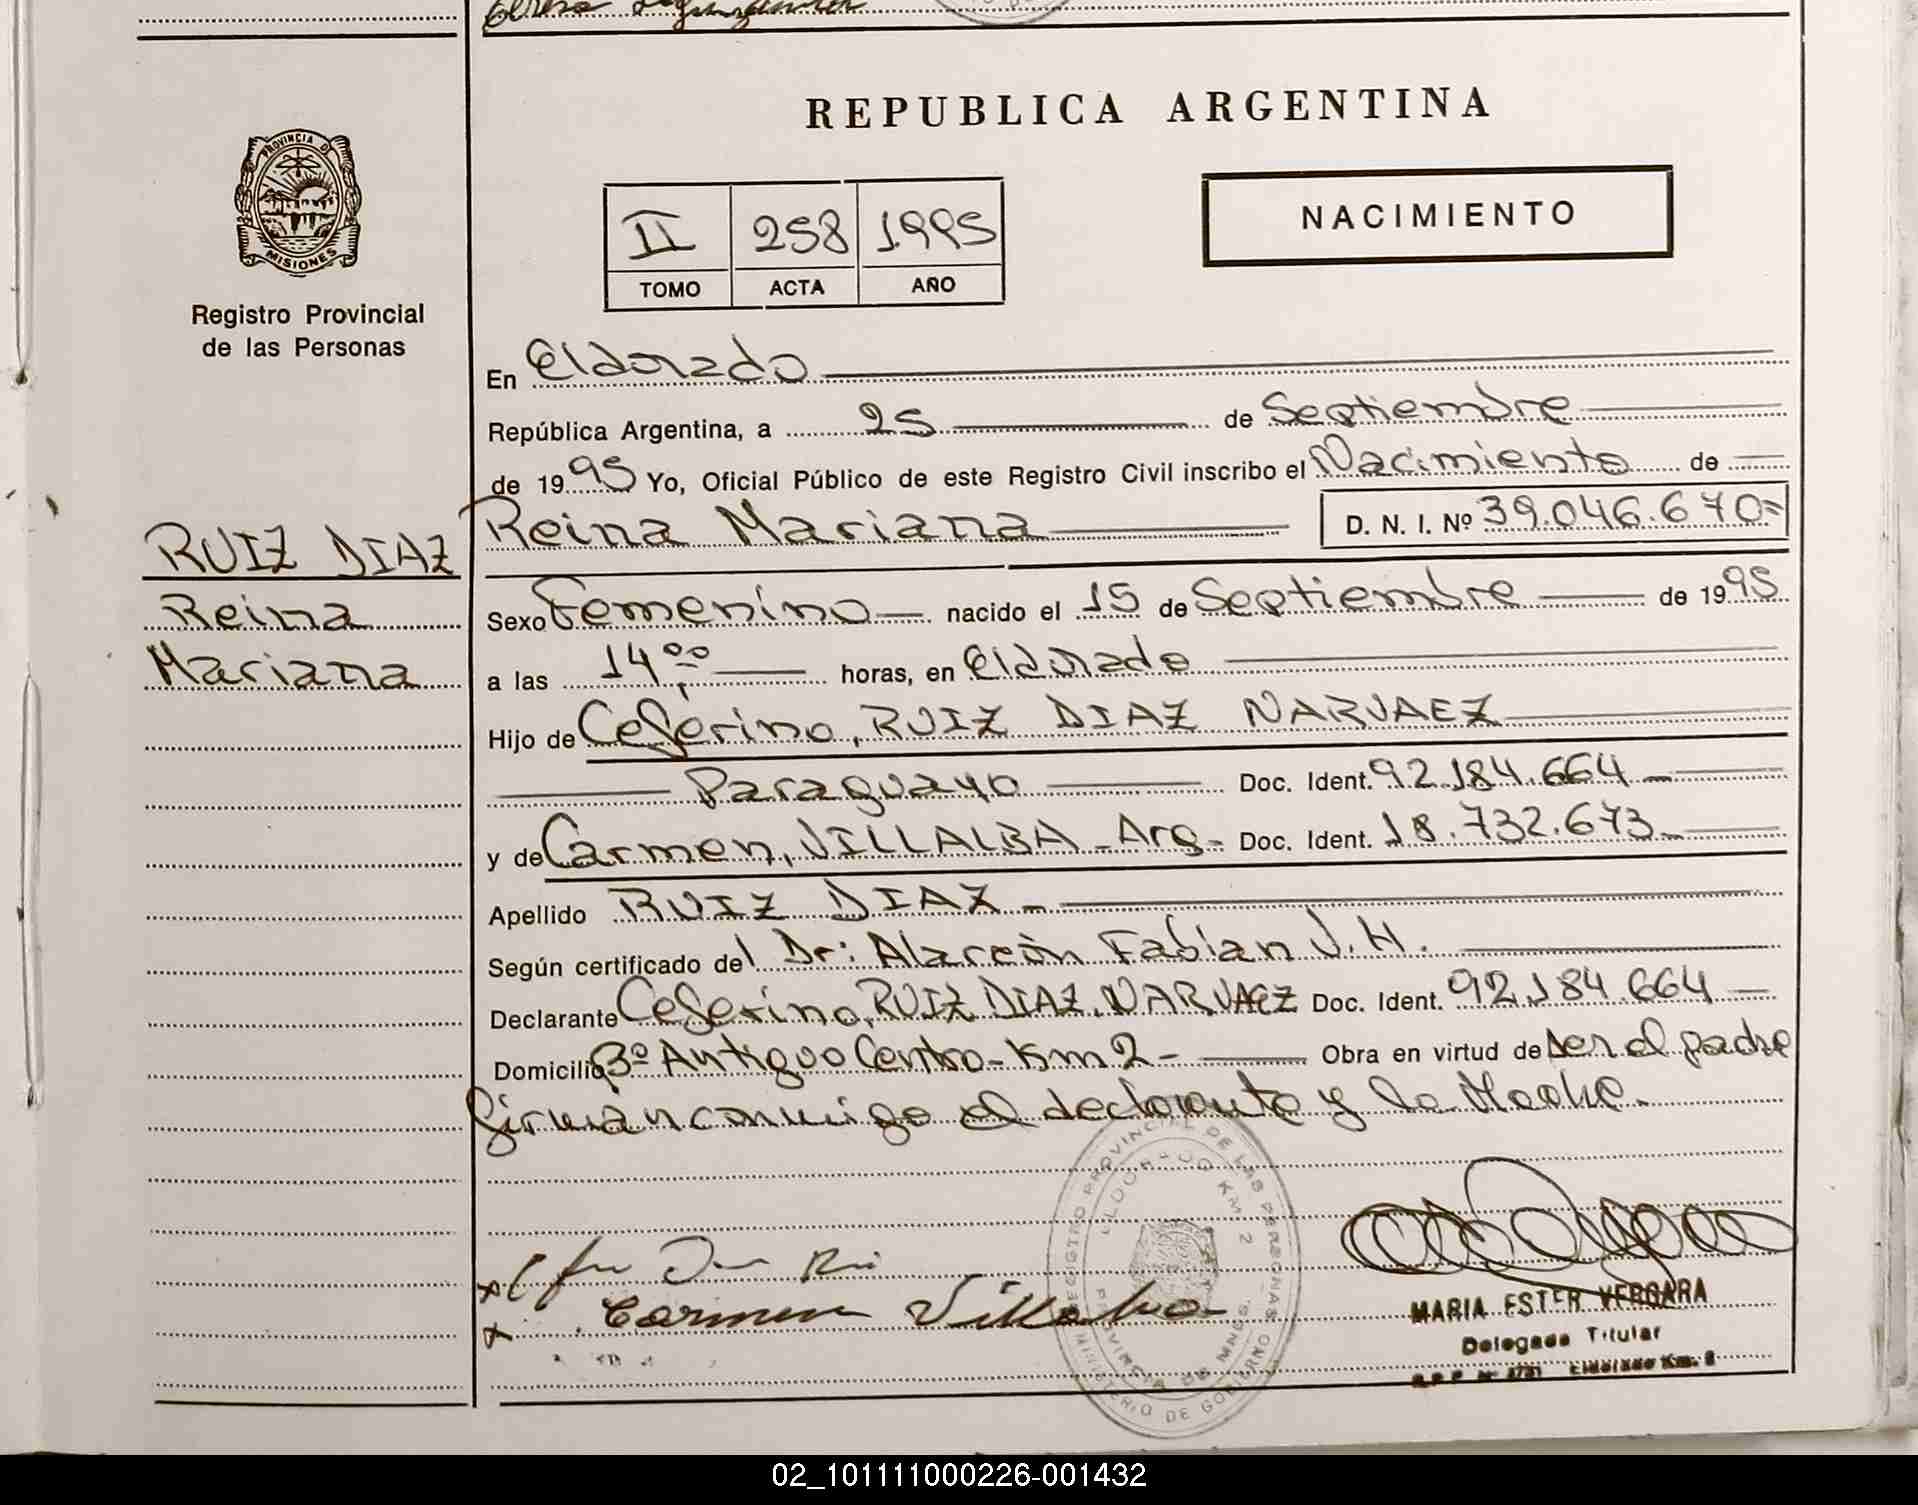 REPUBLICA ARGENTINA
PROVINCIA DE
MISIONES
Registro Provincial
de las Personas
II 258 1995
TOMO ACTA AÑO
NACIMIENTO
En Eldorado
República Argentina, a 25 de Septiembre
de 1995 Yo, Oficial Público de este Registro Civil inscribo el Nacimiento de
RUIZ DIAZ
Reina
Mariana
Reina Mariana D. N. I. Nº 39.046.670
Sexo Femenino nacido el 15 de Septiembre de 1995
a las 14,00 horas, en Eldorado
Hijo de Ceferino, RUIZ DIAZ NARVAEZ
Paraguayo Doc. Ident. 92.184.664
y de Carmen, VILLALBA - Arg - Doc. Ident. 18.732.673
Apellido RUIZ DIAZ
Según certificado del Dr: Alarcón Fabian J.H.
Declarante Ceferino, RUIZ DIAZ NARVAEZ Doc. Ident. 92.184.664
Domicilio Bº Antiguo Centro - Km 2 - Obra en virtud de ser el padre
firman conmigo el declarante y la Madre.
REGISTRO PROVINCIAL DE LAS PERSONAS
ELDORADO KM 2
PROVINCIA DE MNES.
MINISTERIO DE GOBIERNO
Carmen Villalba
MARIA ESTER VERGARA
Delegada Titular
Eldorado Km. 2
02_101111000226-001432